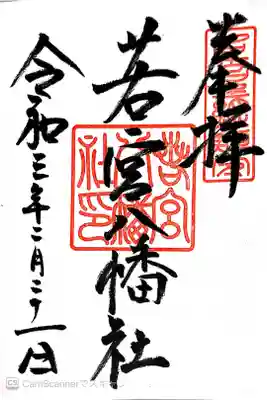 奉拝
若宮八幡社
若宮
八幡
社印
令和三年二月二十一日
CS CamScannerでスキャン